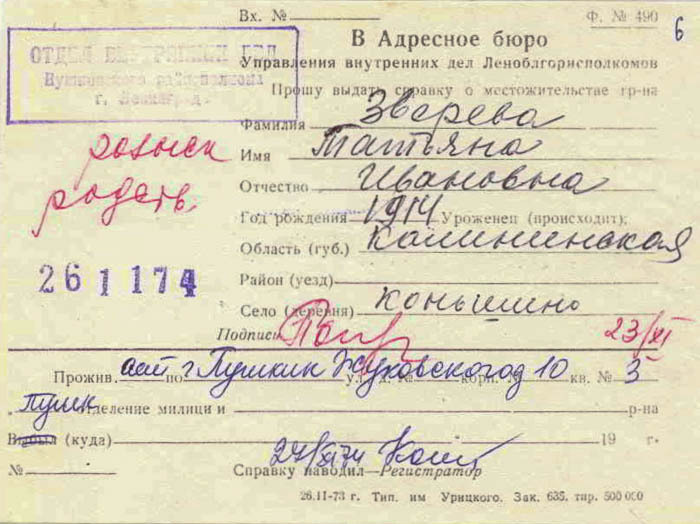 Вх. № Ф. № 490
6
ОТДЕЛ ВНУТРЕННИХ ДЕЛ
Пушкинского райисполкома
г. Ленинград.
В Адресное бюро
Управления внутренних дел Леноблгорисполкомов
Прошу выдать справку о местожительстве гр-на
Фамилия Зверева
Имя Татьяна
Отчество Ивановна
Год рождения 1914 Уроженец (происходит):
Область (губ.) Калининская
Район (уезд)
Село (деревня) Конышино
Подпись
розыск
родств.
26 1 174
23/XI
Прожив. по г. Пушкин Жуковского д 10 ул. д. № корп. № кв. № 3
Пушк отделение милиции р-на
Выбыл (куда) 19 г.
№ Справку наводил—Регистратор
27/XI 74
26.11-73 г. Тип. им Урицкого. Зак. 635. тир. 500 000